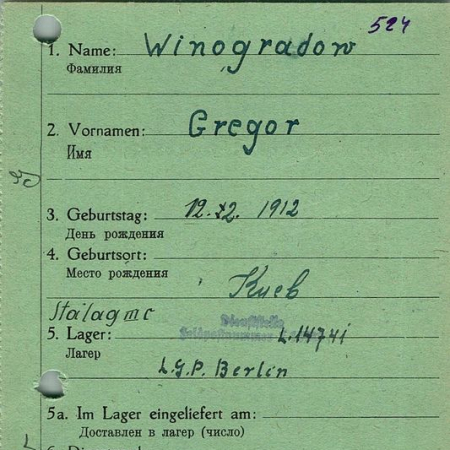 524
1. Name: Winogradow
Фамилия
2. Vornamen: Gregor
Имя
3. Geburtstag: 12. 1912
День рождения
4. Geburtsort:
Место рождения
Киев
Stalag
5. Lager: L.14741
Лагерь
L.G.P. Berlin
5a. Im Lager eingeliefert am:
Доставлен в лагер (число)